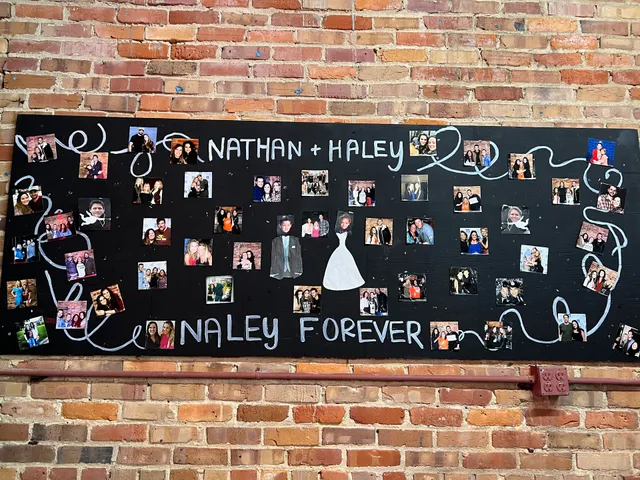 NATHAN + HALEY
NALEY FOREVER